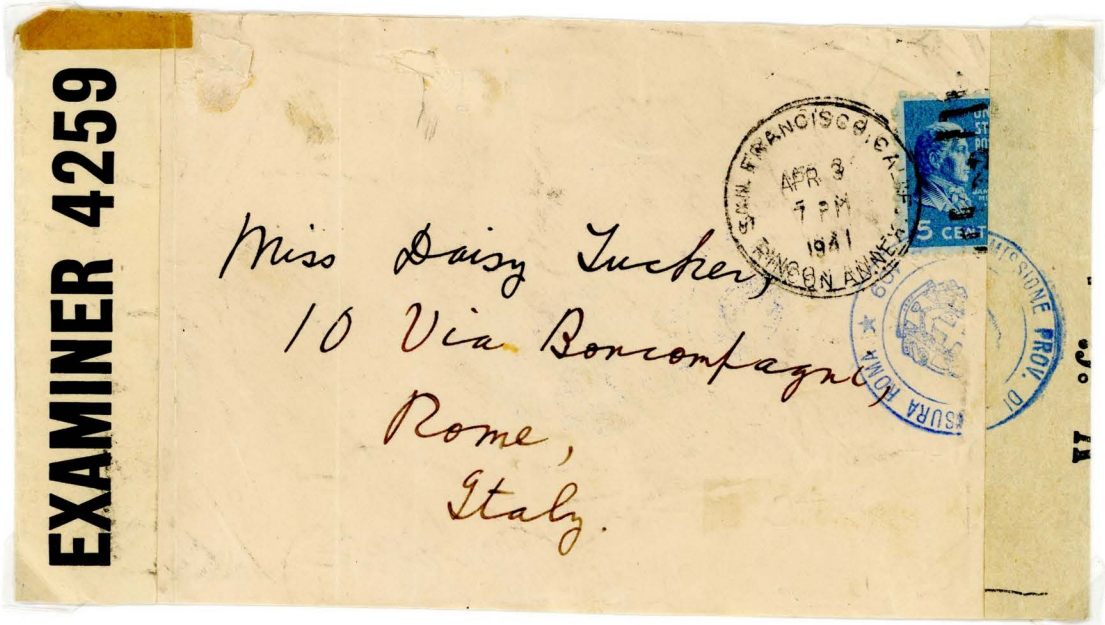 EXAMINER 4259
SAN FRANCISCO, CALIF.
APR 3
7 PM
1941
RINCON ANNEX
5 CENT
Miss Daisy Tucker,
10 Via Boncompagni,
Rome,
Italy.
MISSIONE PROV. DI
SURA ROMA ★